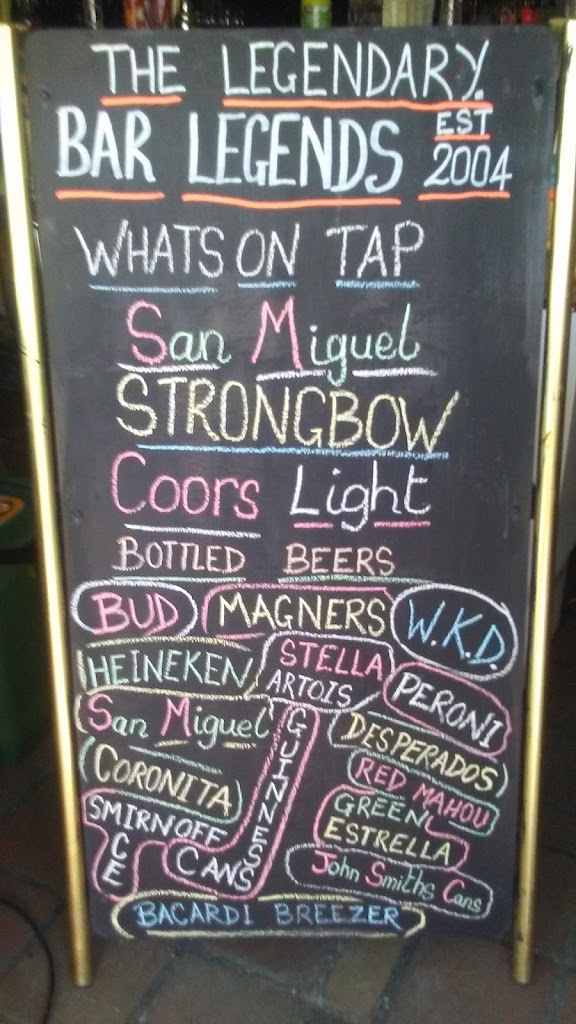 THE LEGENDARY.
BAR LEGENDS EST 2004
WHATS ON TAP
San Miguel
STRONGBOW
Coors Light
BOTTLED BEERS
BUD MAGNERS W.K.D.
HEINEKEN STELLA ARTOIS PERONI
San Miguel GUINNESS CANS DESPERADOS
CORONITA RED MAHOU
SMIRNOFF ICE GREEN ESTRELLA
John Smiths Cans
BACARDI BREEZER